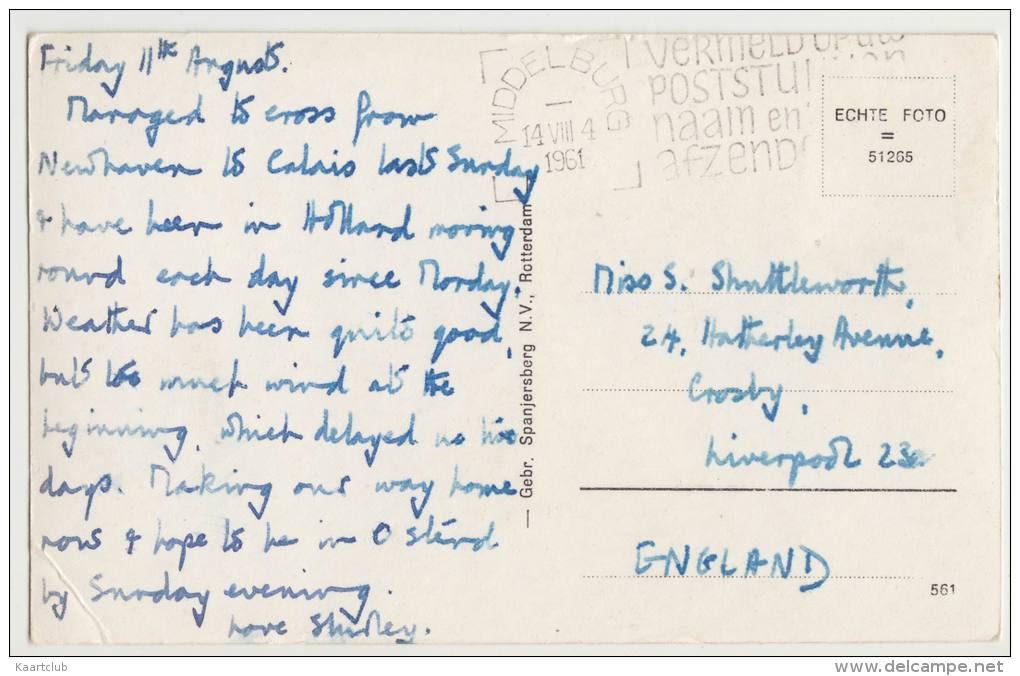 Friday 11th August.
Managed to cross from
Newhaven to Calais last Sunday
& have been in Holland moving
round each day since Monday.
Weather has been quite good,
but too much wind at the
beginning, which delayed us two
days. Making our way home
now & hope to be in Ostend
by Sunday evening.
Love Shirley.
MIDDELBURG
1
14 VIII 4
1961
VERMELD OP UW
POSTSTUKKEN
naam en
afzender
ECHTE FOTO
=
51265
— Gebr. Spanjersberg N.V., Rotterdam
Miss S. Shuttleworth,
24, Hatherley Avenue,
Crosby,
Liverpool 23
ENGLAND
561
Kaartclub
www.delcampe.net